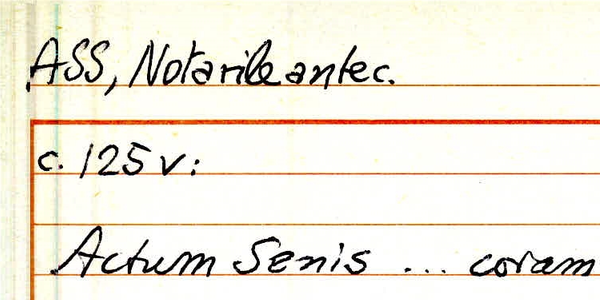 ASS, Notarile antec.
c. 125 v:
Actum Senis ... coram